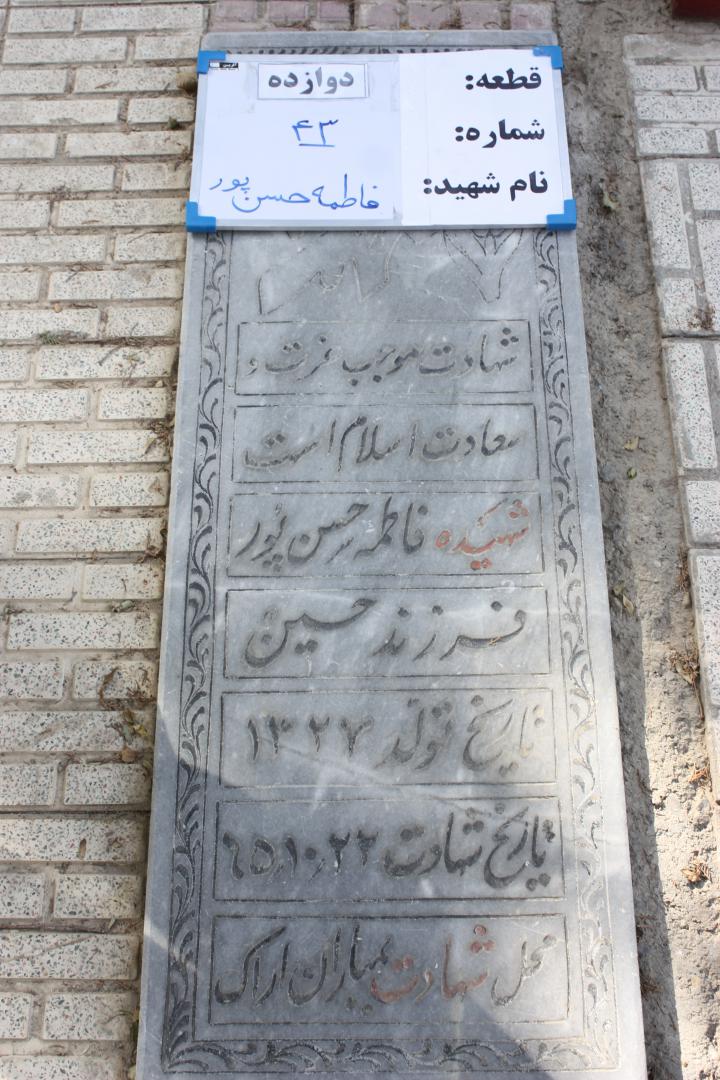 قطعه: دوازده
شماره: ۴۳
نام شهید: فاطمه حسن پور
شهادت موجب عزت و
سعادت اسلام است
شهیده فاطمه حسن پور
فرزند حسین
تاریخ تولد ۱۳۲۷
تاریخ شهادت ۶۵٫۱۰٫۲۲
محل شهادت بمباران اراک